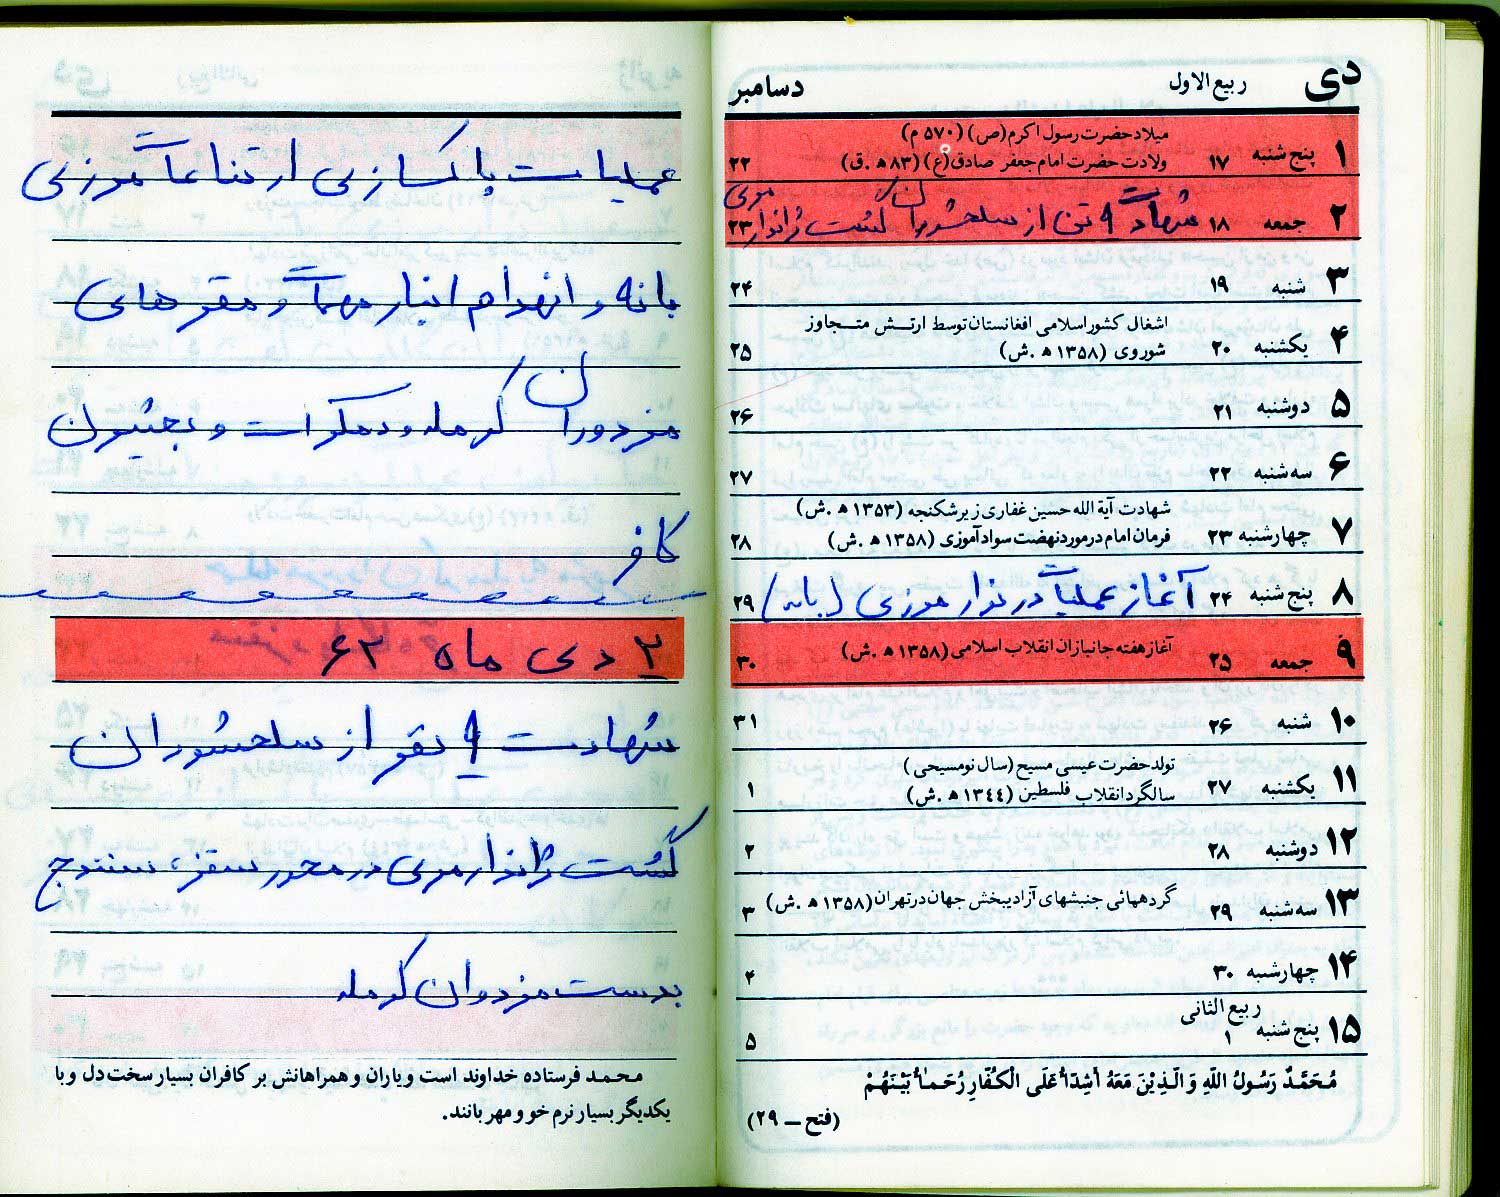 دی ربیع الاول دسامبر
میلاد حضرت رسول اکرم (ص) (۵۷۰ م)
۱ پنج شنبه ۱۷ ولادت حضرت امام جعفر صادق (ع) (۸۳ ه .ق) ۲۲
۲ جمعه ۱۸ شهادت ۹ تن از سلحشوران گشت ژاندارمری ۲۳
۳ شنبه ۱۹ ۲۴
اشغال کشور اسلامی افغانستان توسط ارتش متجاوز
۴ یکشنبه ۲۰ شوروی (۱۳۵۸ ه .ش) ۲۵
۵ دوشنبه ۲۱ ۲۶
۶ سه شنبه ۲۲ ۲۷
شهادت آیة الله حسین غفاری زیر شکنجه (۱۳۵۳ ه .ش)
۷ چهارشنبه ۲۳ فرمان امام در مورد نهضت سوادآموزی (۱۳۵۸ ه .ش) ۲۸
۸ پنج شنبه ۲۴ آغاز عملیات در نوار مرزی (بانه) ۲۹
۹ جمعه ۲۵ آغاز هفته جانبازان انقلاب اسلامی (۱۳۵۸ ه .ش) ۳۰
۱۰ شنبه ۲۶ ۳۱
تولد حضرت عیسی مسیح (سال نو مسیحی)
۱۱ یکشنبه ۲۷ سالگرد انقلاب فلسطین (۱۳۴۴ ه .ش) ۱
۱۲ دوشنبه ۲۸ ۲
۱۳ سه شنبه ۲۹ گردهمائی جنبشهای آزادیبخش جهان در تهران (۱۳۵۸ ه .ش) ۳
۱۴ چهارشنبه ۳۰ ۴
ربیع الثانی
۱۵ پنج شنبه ۱ ۵
مُحَمَّدٌ رَسُولُ اللّهِ وَ الَّذِیْنَ مَعَهُ اَشِدّاءُ عَلَی الْکُفّارِ رُحَماءُ بَیْنَهُمْ
(فتح ــ ۲۹)
عملیات پاکسازی ارتفاعات مرزی
بانه و انهدام انبار مهمات و مقرهای
مزدوران کومله و دمکرات و بعثیون
کافر
۲ دی ماه ۶۲
شهادت ۹ نفر از سلحشوران
گشت ژاندارمری در محور سقز، سنندج
بدست مزدوران کومله
محمد فرستاده خداوند است و یاران و همراهانش بر کافران بسیار سخت دل و با
یکدیگر بسیار نرم خو و مهربانند.